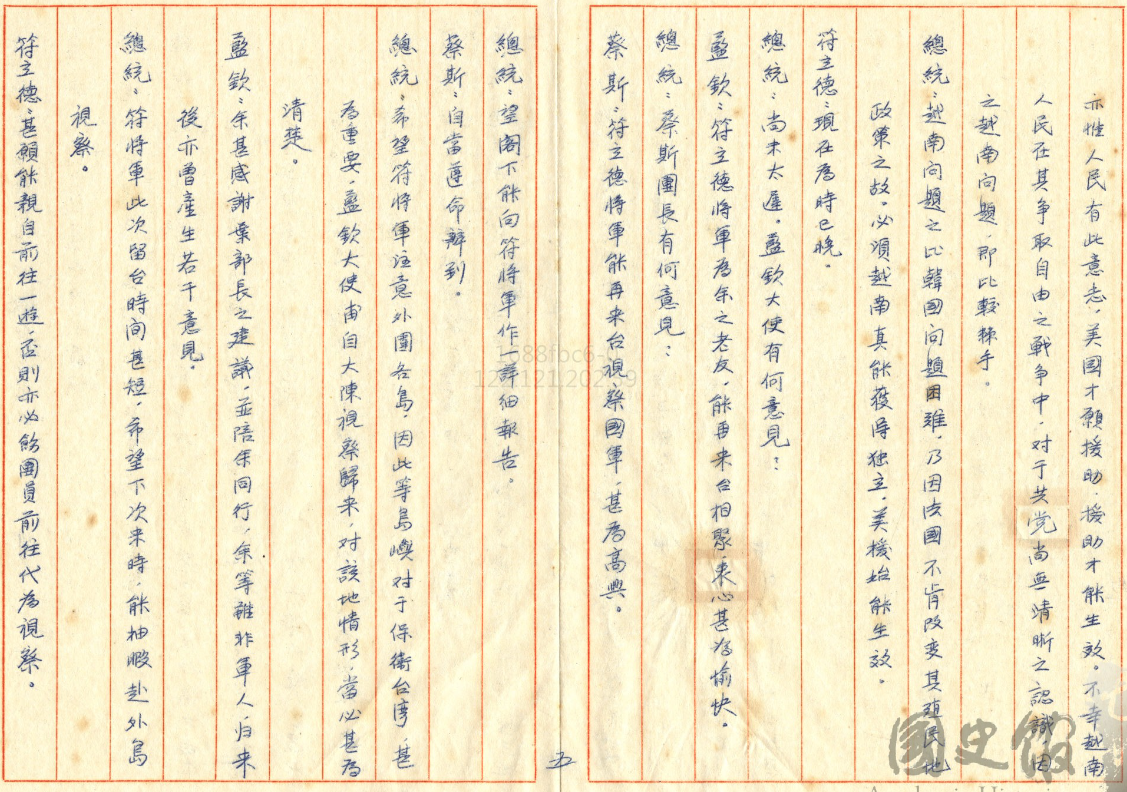 亦惟人民有此意志，美國才願援助，援助才能生效。不幸越南
人民在其争取自由之戰争中，对于共党尚無清晰之認識，因
之越南问題，即比較棘手。
總統：越南问題之比韓國问題困难，乃因法國不肯改变其殖民地
政策之故。必須越南真能获得独立，美援始能生效。
符立德：現在為時已晚。
總統：尚未太遲。藍欽大使有何意見：
藍欽：符立德將軍為余之老友，能再来台相聚，衷心甚為愉快。
總統：蔡斯團長有何意見：
蔡斯：符立德將軍能再来台視察國軍，甚為高興。
五
總統：望阁下能向符將軍作詳细報告。
蔡斯：自當遵命辦到。
總統：希望符將軍注意外圍各島，因此等島嶼对于保衛台湾，甚
為重要，藍欽大使甫自大陳視察歸来，对該地情形，當必甚為
清楚。
藍欽：余甚感謝葉部長之建議，並陪余同行，余等雖非軍人，归来
後亦曾產生若干意見。
總統：符將軍此次留台時间甚短，希望下次来時，能抽暇赴外島
視察。
符立德：甚願能親自前往一遊，否則亦必飭團員前往代為視察。
國史館